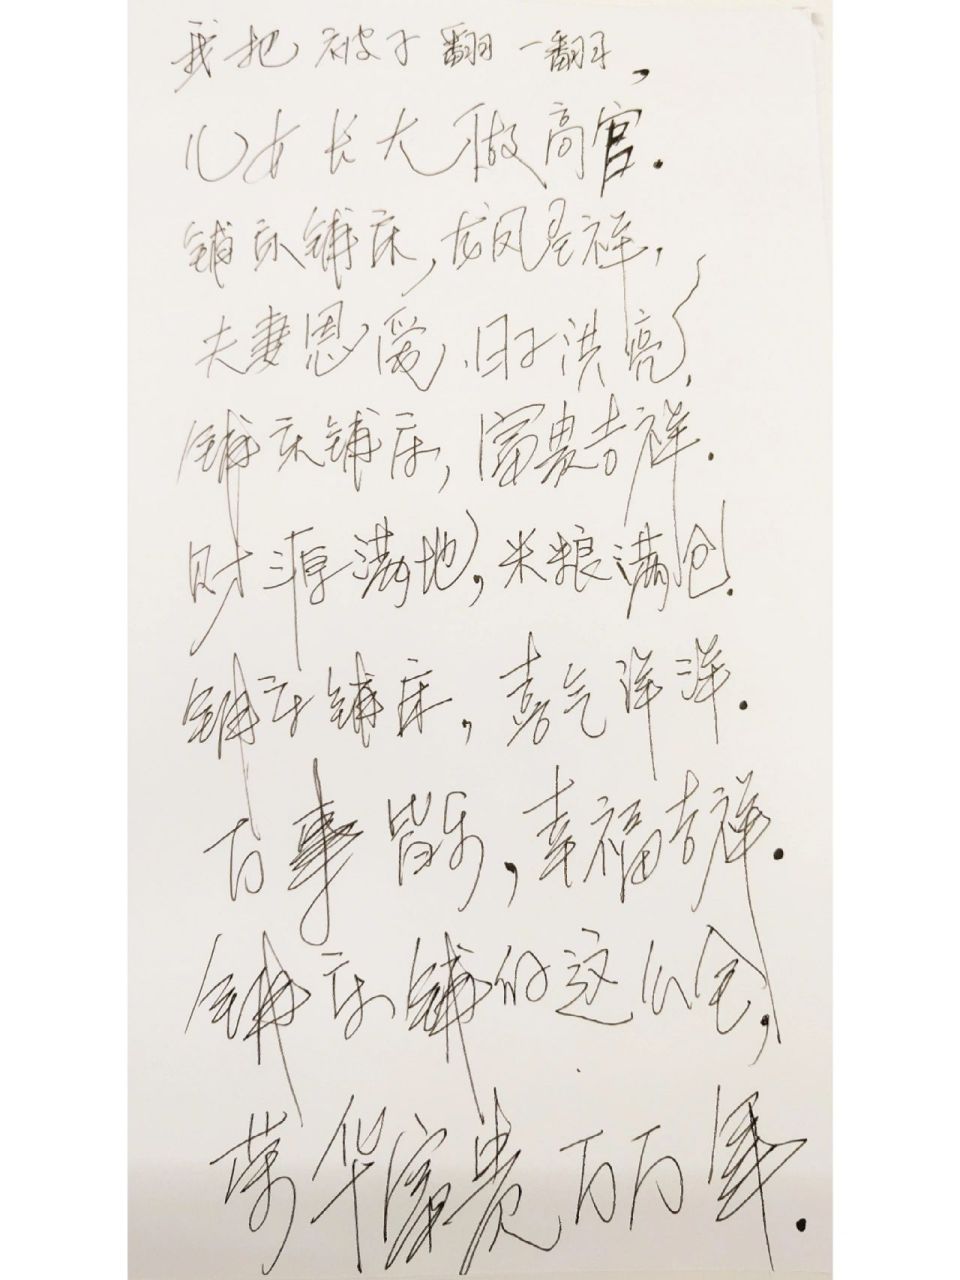 我把被子翻一翻,
儿女长大做高官.
铺床铺床,龙凤呈祥.
夫妻恩爱.日子洪亮,
铺床铺床,富贵吉祥.
财源满地,米粮满仓.
铺床铺床,喜气洋洋.
百事皆乐,幸福吉祥.
铺床铺的这么全,
荣华富贵万万年.